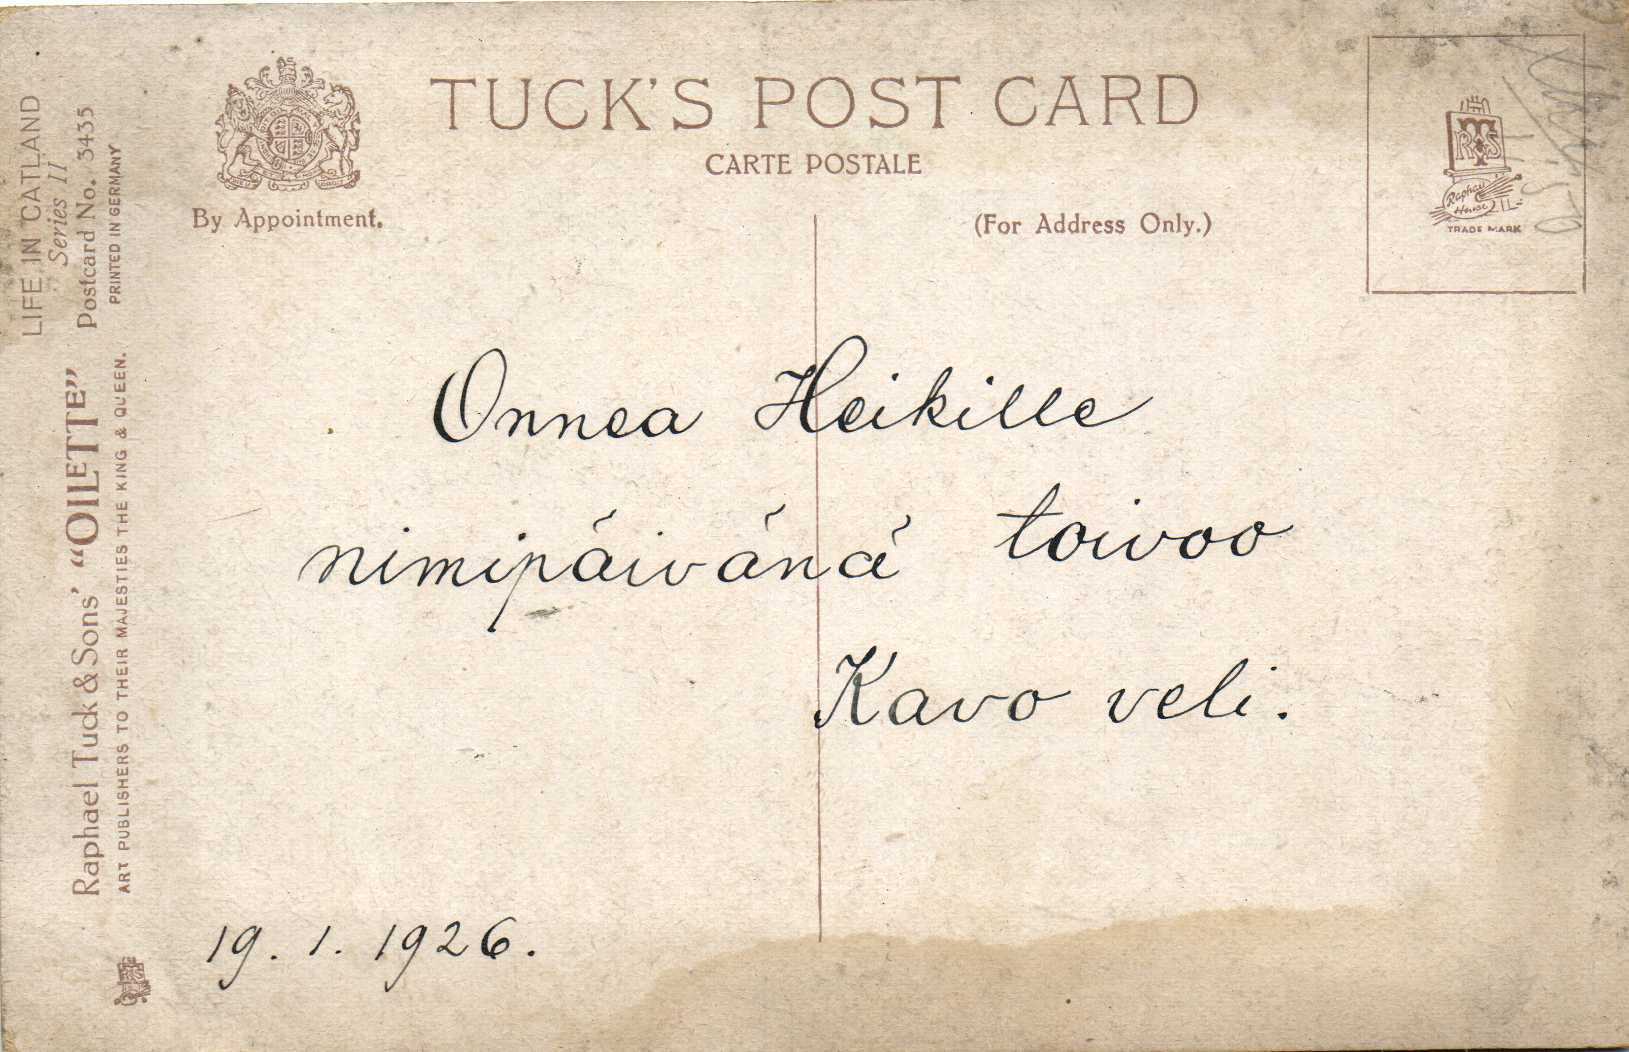 TUCK'S POST CARD
CARTE POSTALE
By Appointment.
(For Address Only.)
Raphael House
TRADE MARK
LIFE IN CATLAND
Series II
Postcard No. 3435
PRINTED IN GERMANY
Raphael Tuck & Sons' “OILETTE”
ART PUBLISHERS TO THEIR MAJESTIES THE KING & QUEEN.
Onnea Heikille
nimipäivänä toivoo
Kavo veli.
19. 1. 1926.